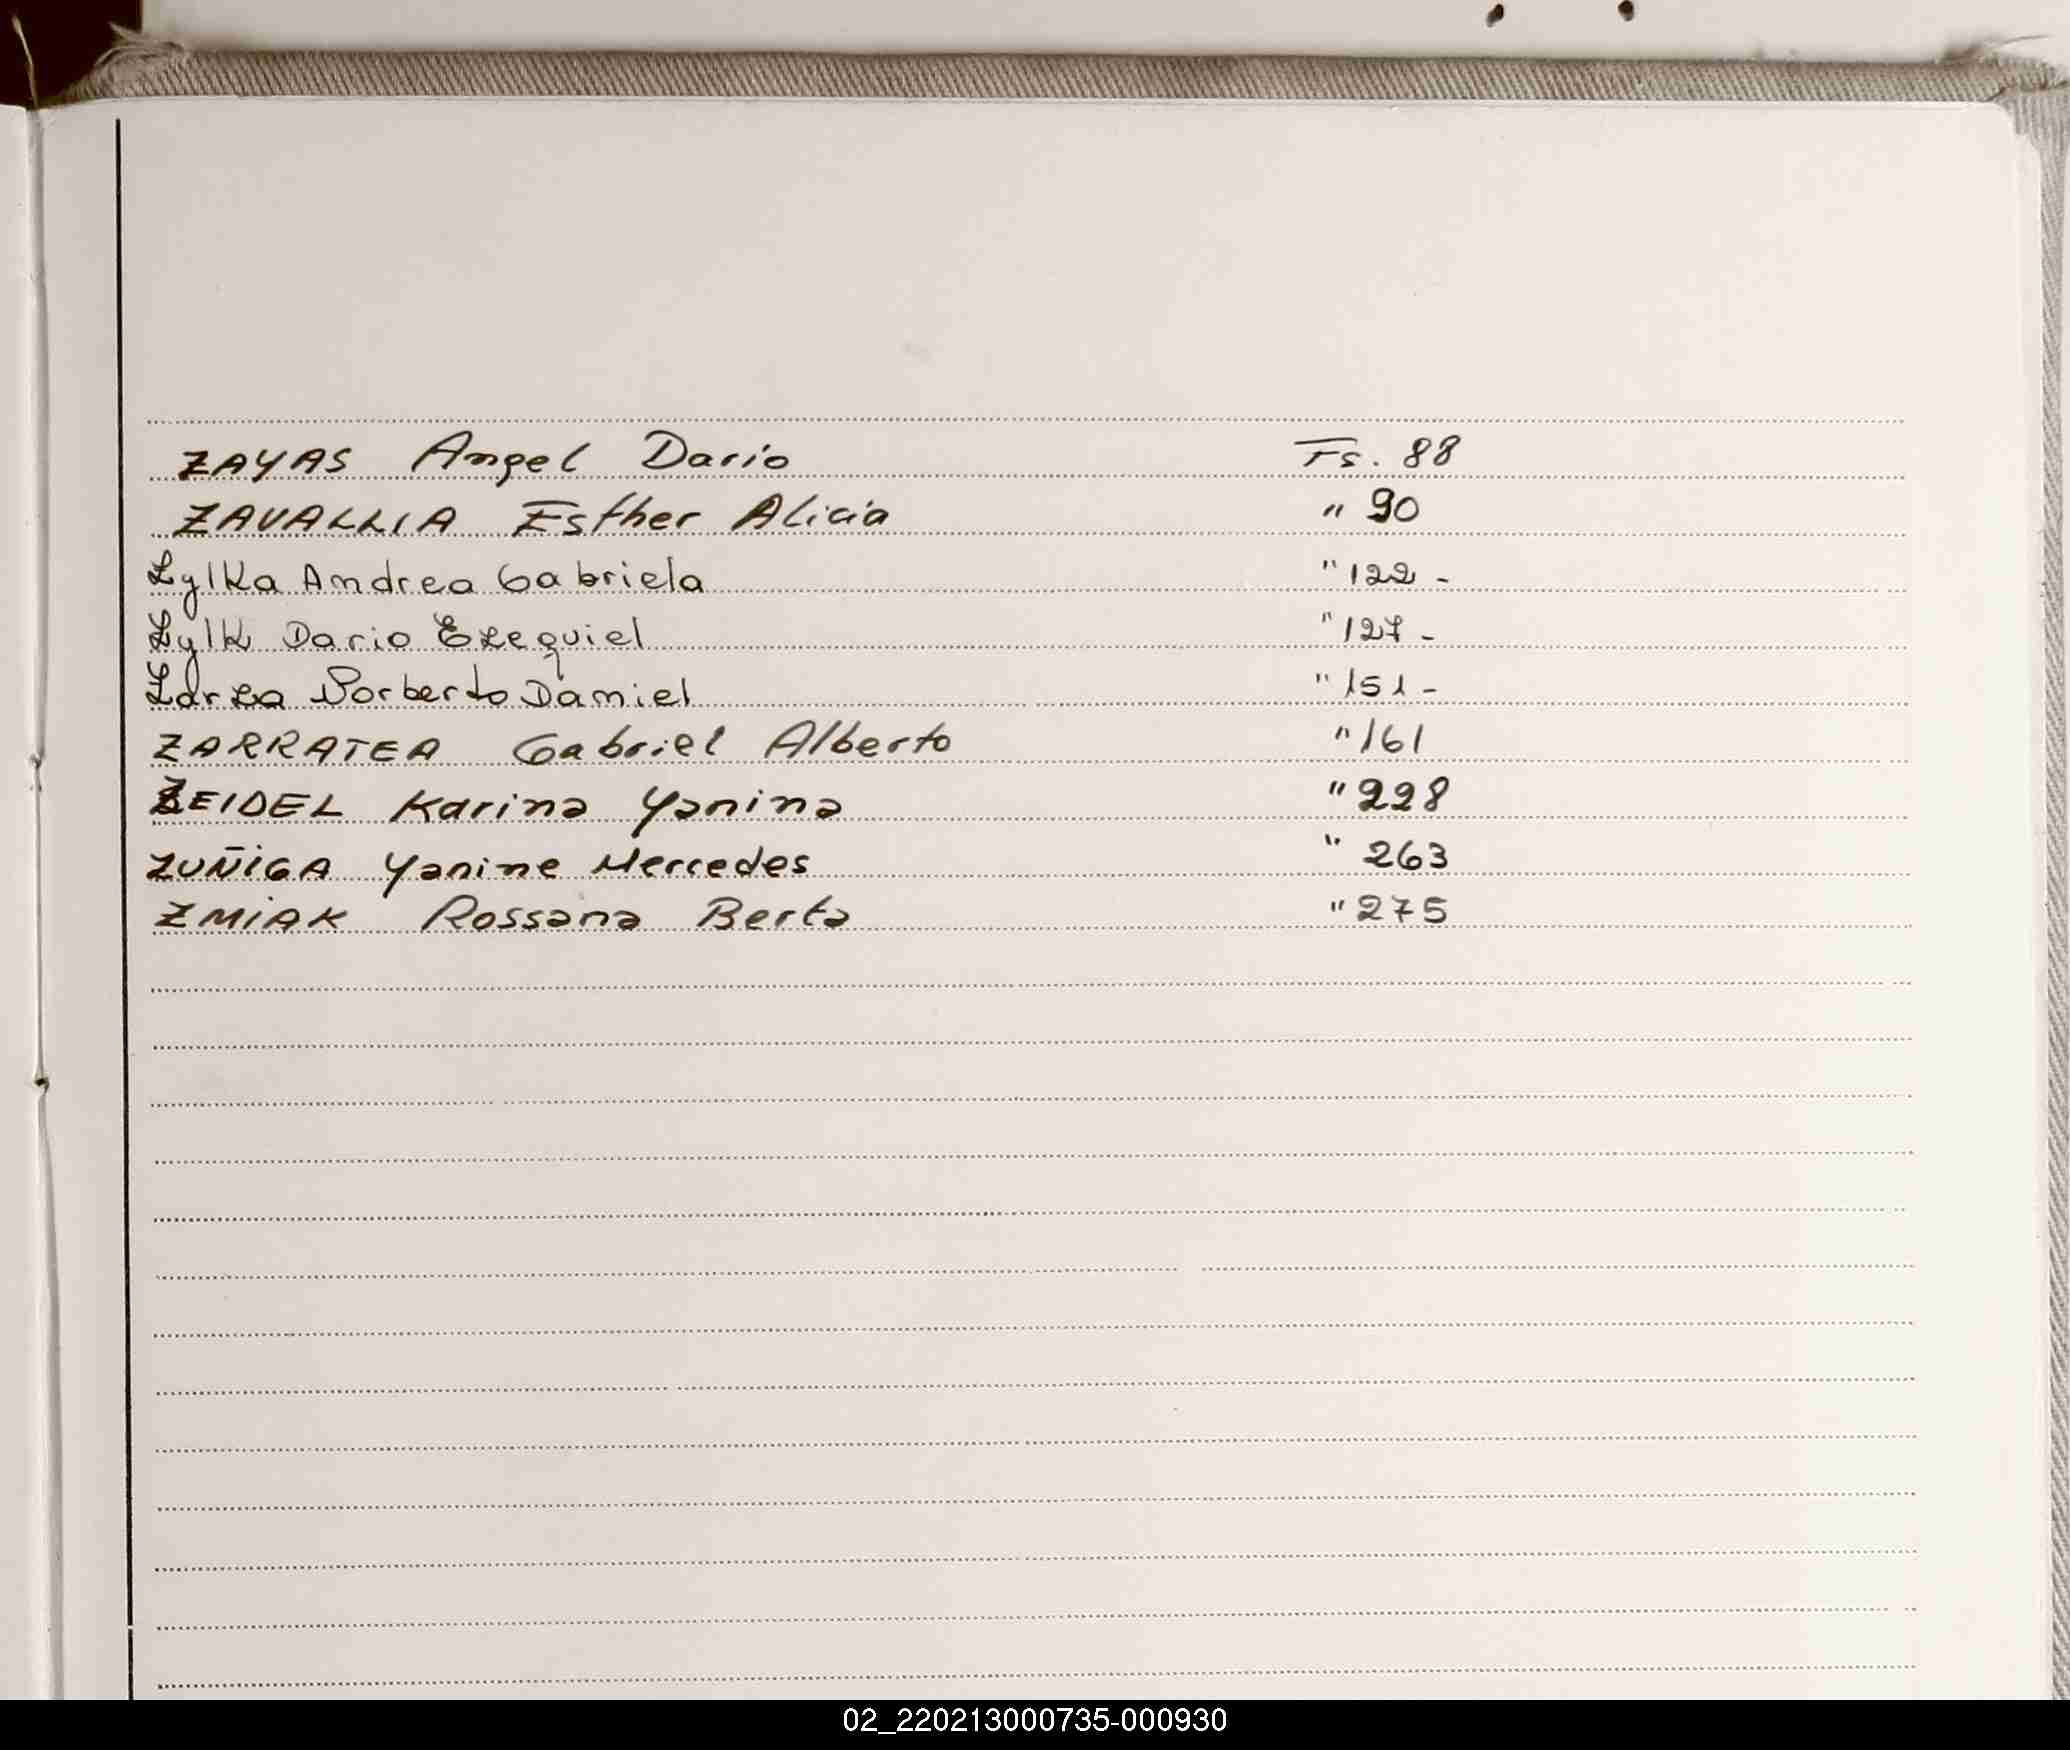 ZAYAS Angel Dario Fs. 88
ZAVALLIA Esther Alicia " 90
Zylka Andrea Gabriela " 122 -
Zylk Dario Ezequiel " 127 -
Zarza Norberto Daniel " 151 -
ZARRATEA Gabriel Alberto " 161
ZEIDEL Karina Yanina " 228
ZUÑIGA Yanine Mercedes " 263
ZMIAK Rossana Berta " 275
02_220213000735-000930